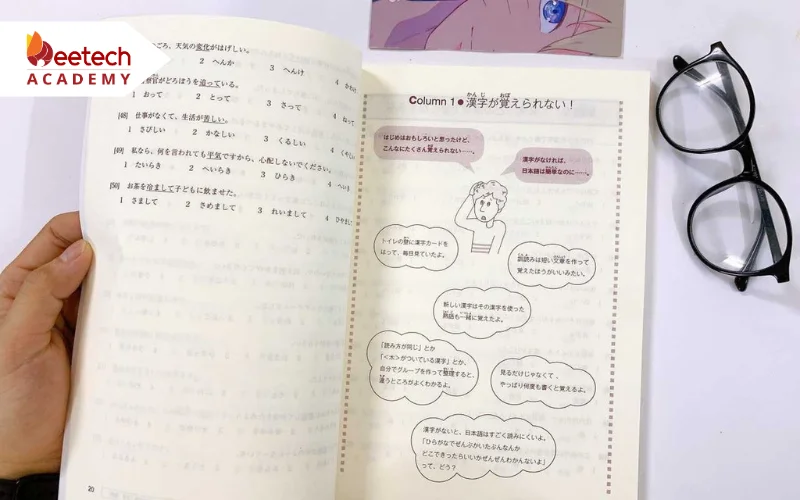 Beetech
ACADEMY
ごろ、天気の変化がはげしい。
2 へんか
3 へんけ
4
がどろぼうを追っている。
1 おって
2 とって
3 さって
4 ねって
[48] 仕事がなくて、生活が苦しい。
1 さびしい
2 かなしい
3 くるしい
4
[49] 私なら、何を言われても平気ですから、心配しないでください。
1 たいらき
2 へいらき
3 ひらき
4 へいき
[50] お茶を冷まして子どもに飲ませた。
1 さまして
2 さめまして
3 れいまして
4 ひやまし
20
Column 1●漢字が覚えられない!
はじめはおもしろいと思ったけど、
こんなにたくさん覚えられない……。
漢字がなければ、
日本語は簡単なのに……。
トイレの壁に漢字カードを
はって、毎日見ていたよ。
訓読みは短い文章を作って
覚えたほうがいいみたい。
新しい漢字はその漢字を使った
熟語も一緒に覚えたよ。
「読み方が同じ」とか
「<木>がついている漢字」とか、
自分でグループを作って整理すると、
違うところがよくわかるよ。
見るだけじゃなくて、
やっぱり何度も書くと覚えるよ。
漢字がないと、日本語はすごく読みにくいよ。
「ひらがなでぜんぶかいたぶんなんか
どこできったらいいかぜんぜんわかんないよ」
って、どう?